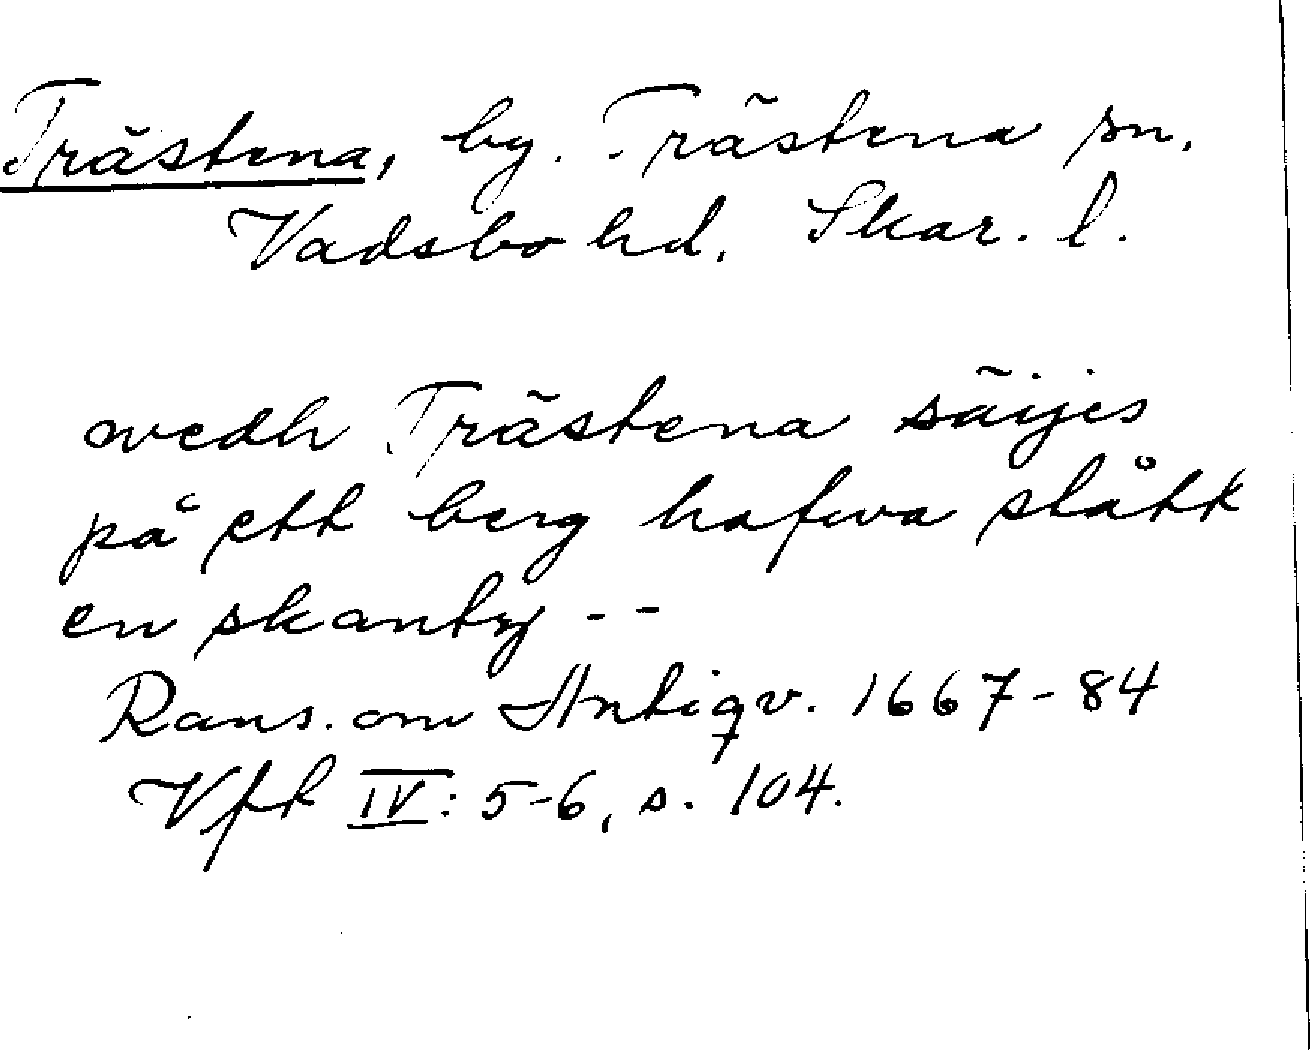 Trästena, by. Trästena sn.
Vadsbo hd. Skar. l.
wedh Trästena säijes
på ett berg hafwa stått
en skantz --
Rans. om Antiqv. 1667-84
Vft IV: 5-6, s. 104.